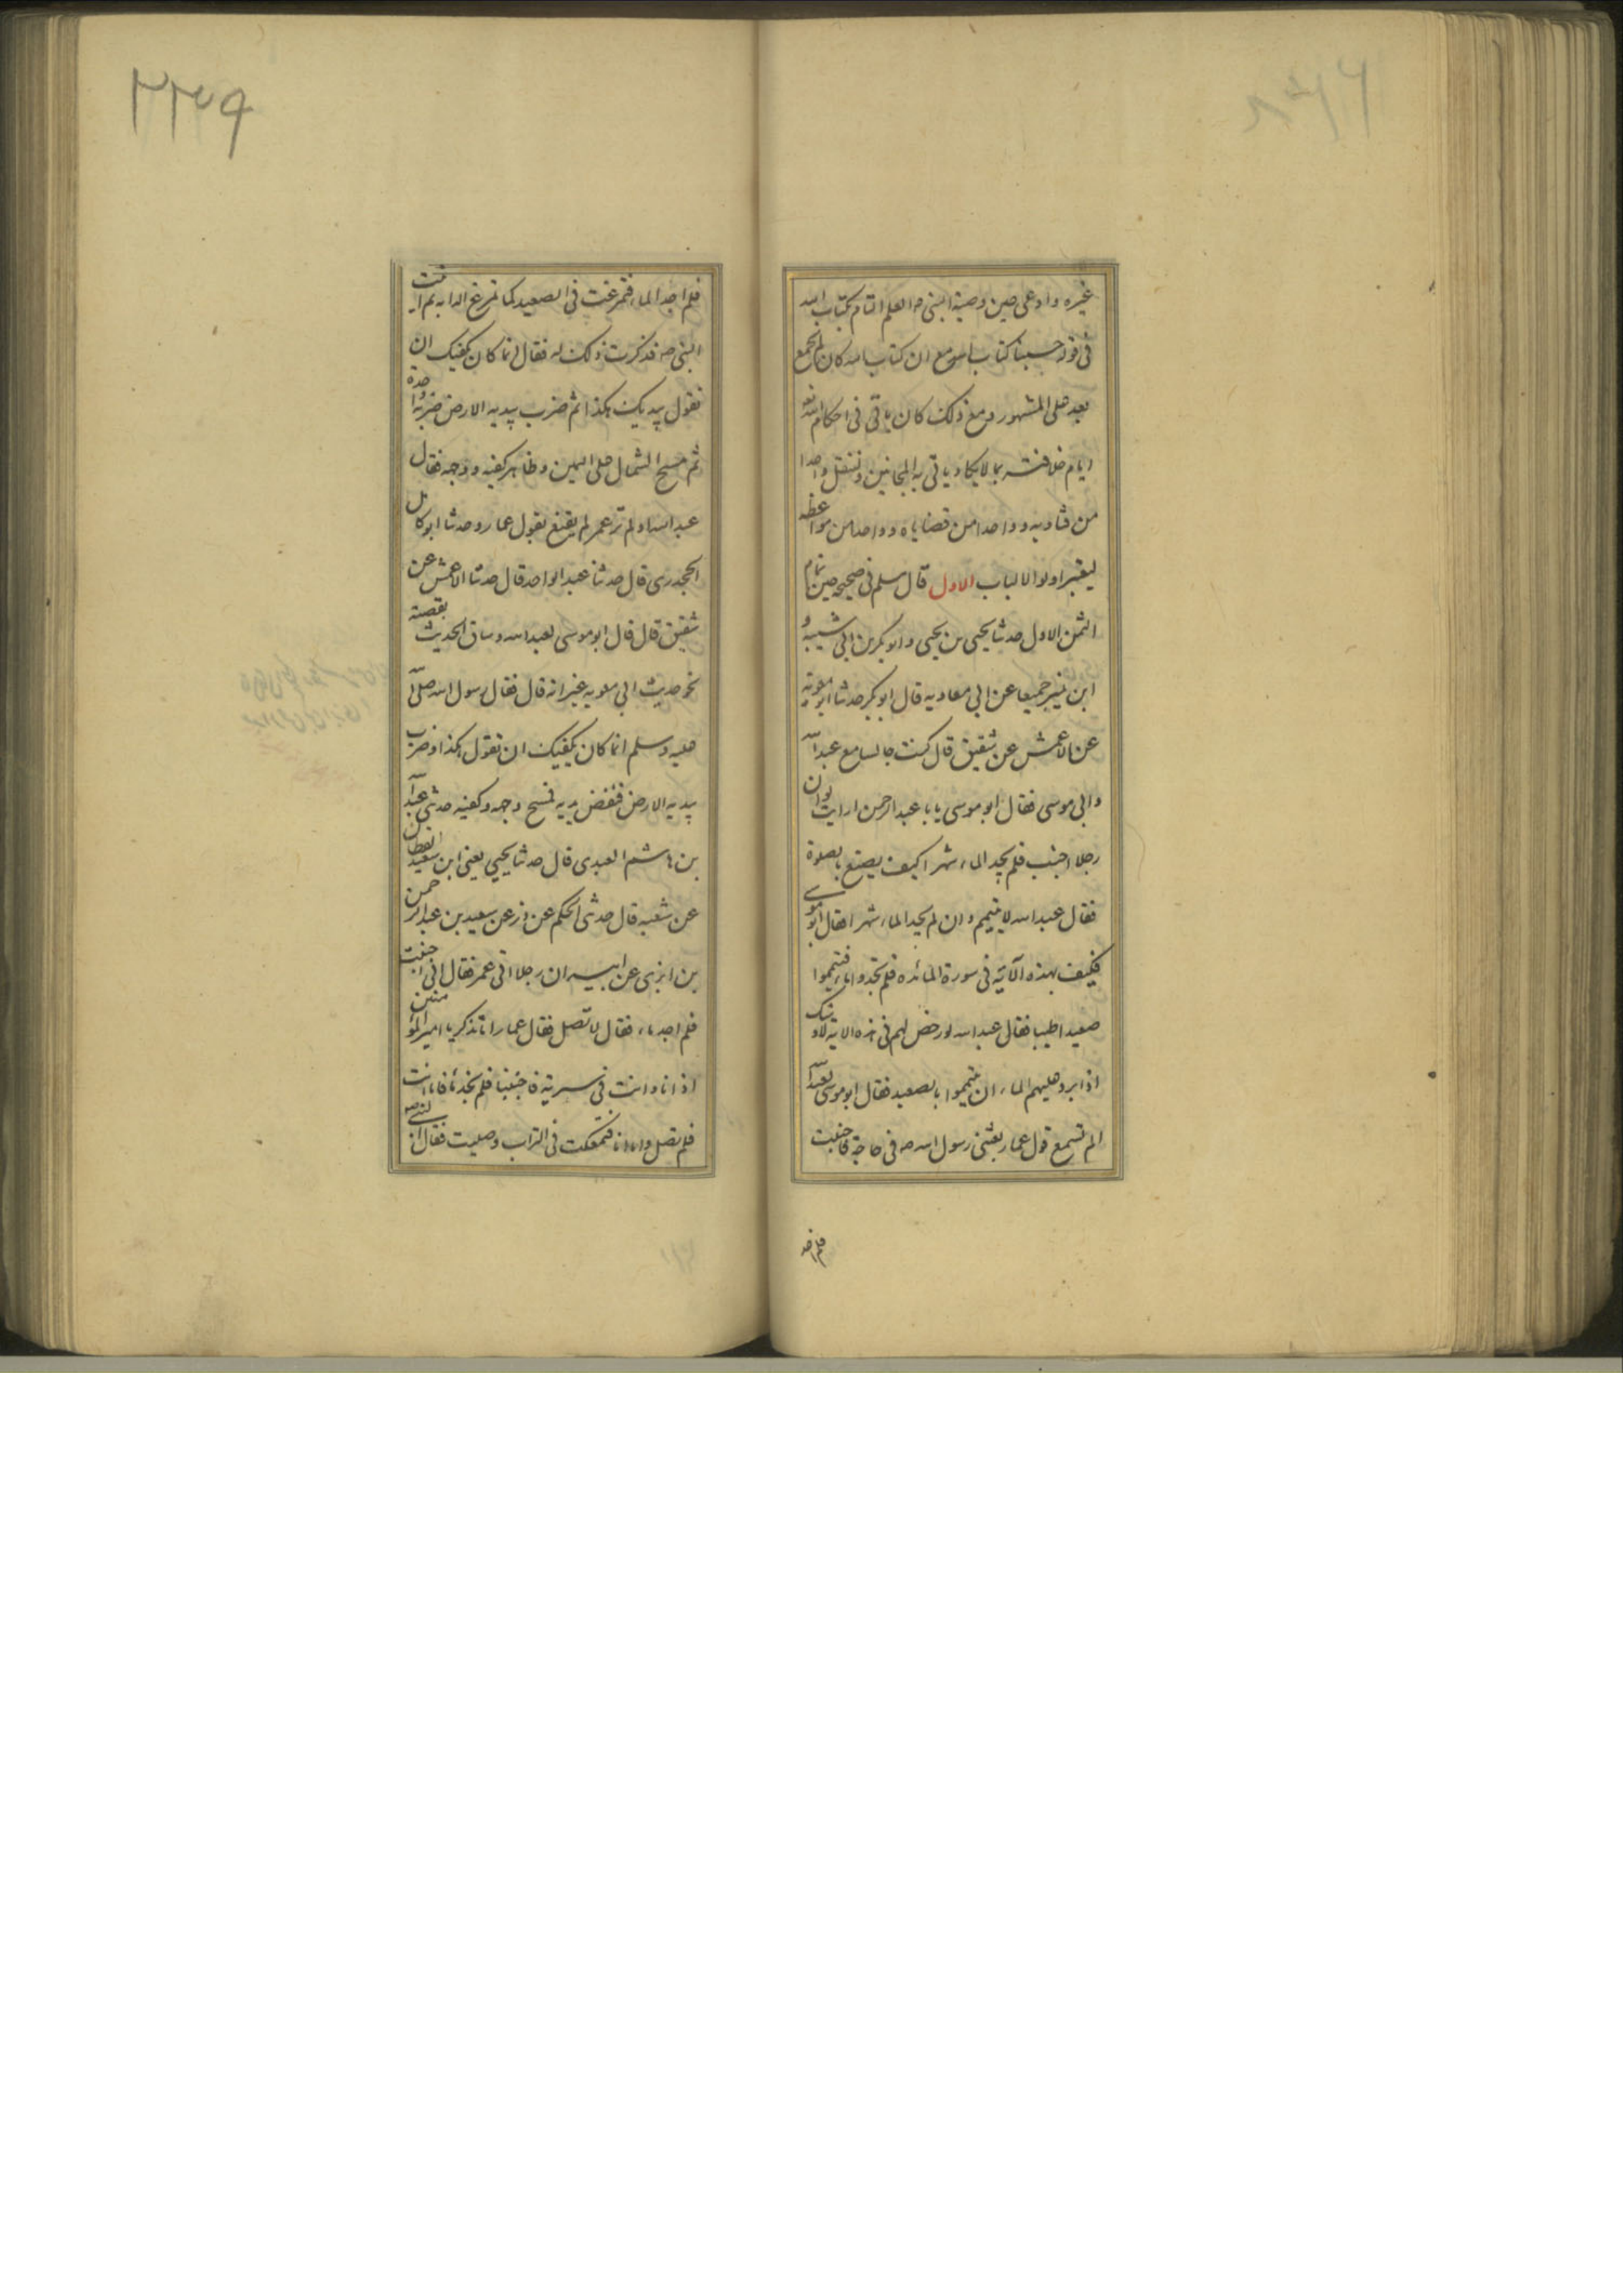 غيره وادعى حين وصية النبى صه العلم التام بكتاب الله
فى قوله حسبنا كتاب الله مع ان كتاب الله كان لم يجمع
بعد على المشهور ومع ذلك كان ياتى فى احكام الله
ايام خلافته بما لا يكاد ياتى به المجانين وننقل واحدا
من فتاويه وواحدا من قضاياه وواحدا من مواعظه
ليعتبر اولوا الالباب الاول قال مسلم فى صحيحه حين تمام
الثمن الاول حدثنا يحيى بن يحيى وابو بكر بن ابى شيبة و
ابن نمير جميعا عن ابى معاويه قال ابو بكر حدثنا ابو معوية
عن الاعمش عن شقيق قال كنت جالسا مع عبد الله
وابى موسى فقال ابو موسى يا با عبد الرحمن ارايت لو ان
رجلا اجنب فلم يجد الماء شهرا كيف يصنع بالصلوة
فقال عبد الله لا يتيمم وان لم يجد الماء شهرا فقال ابو موسى
فكيف بهذه الآية فى سورة المائده فلم تجدوا ماء فتيمموا
صعيدا طيبا فقال عبد الله لو رخص لهم فى هذه الاية لاوشك
اذا برد عليهم الماء ان يتيمموا بالصعيد فقال ابو موسى لعبد الله
الم تسمع قول عمار بعثنى رسول الله صه فى حاجة فاجنبت
فلم اجد
٢٢٣٩
فلم اجد الماء فتمرغت فى الصعيد كما تمرغ الدابه ثم اتيت
النبى صه فذكرت ذلك له فقال انما كان يكفيك ان
تقول بيديك هكذا ثم ضرب بيديه الارض ضربة واحدة
ثم مسح الشمال على اليمين وظاهر كفيه ووجهه فقال
عبد الله اولم تر عمر لم يقنع بقول عمار وحدثنا ابو كامل
الجحدرى قال حدثنا عبد الواحد قال حدثنا الاعمش عن
شقيق قال قال ابو موسى لعبد الله وساق الحديث بقصته
نحو حديث ابى معويه غير انه قال فقال رسول الله صلى الله
عليه وسلم انما كان يكفيك ان تقول هكذا وضرب
بيديه الارض فنفض يديه فمسح وجهه وكفيه حدثنى عبد الله
بن هاشم العبدى قال حدثنا يحيى يعنى ابن سعيد القطان
عن شعبه قال حدثنى الحكم عن ذر عن سعيد بن عبد الرحمن
بن ابزى عن ابيه ان رجلا اتى عمر فقال انى اجنبت
فلم اجد ماء فقال لا تصل فقال عمار اما تذكر يا امير المؤمنين
اذ انا وانت فى سرية فاجنبنا فلم نجد ماء فاما انت
فلم تصل واما انا فتمعكت فى التراب وصليت فقال النبى صه